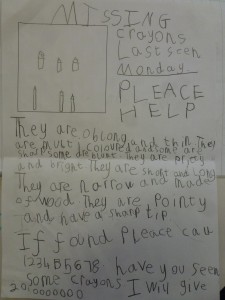 MISSING
crayons
Last seen
Monday
PLEACE
HELP
They are oblong
are multi coloured and thin. They
sharp some are blunt. They are prety
and bright They are short and long
They are narrow and made
of wood. They are pointy
and have a sharp tip
If found Pleace call
12345678 have you seen
some crayons I will give
20,0000000